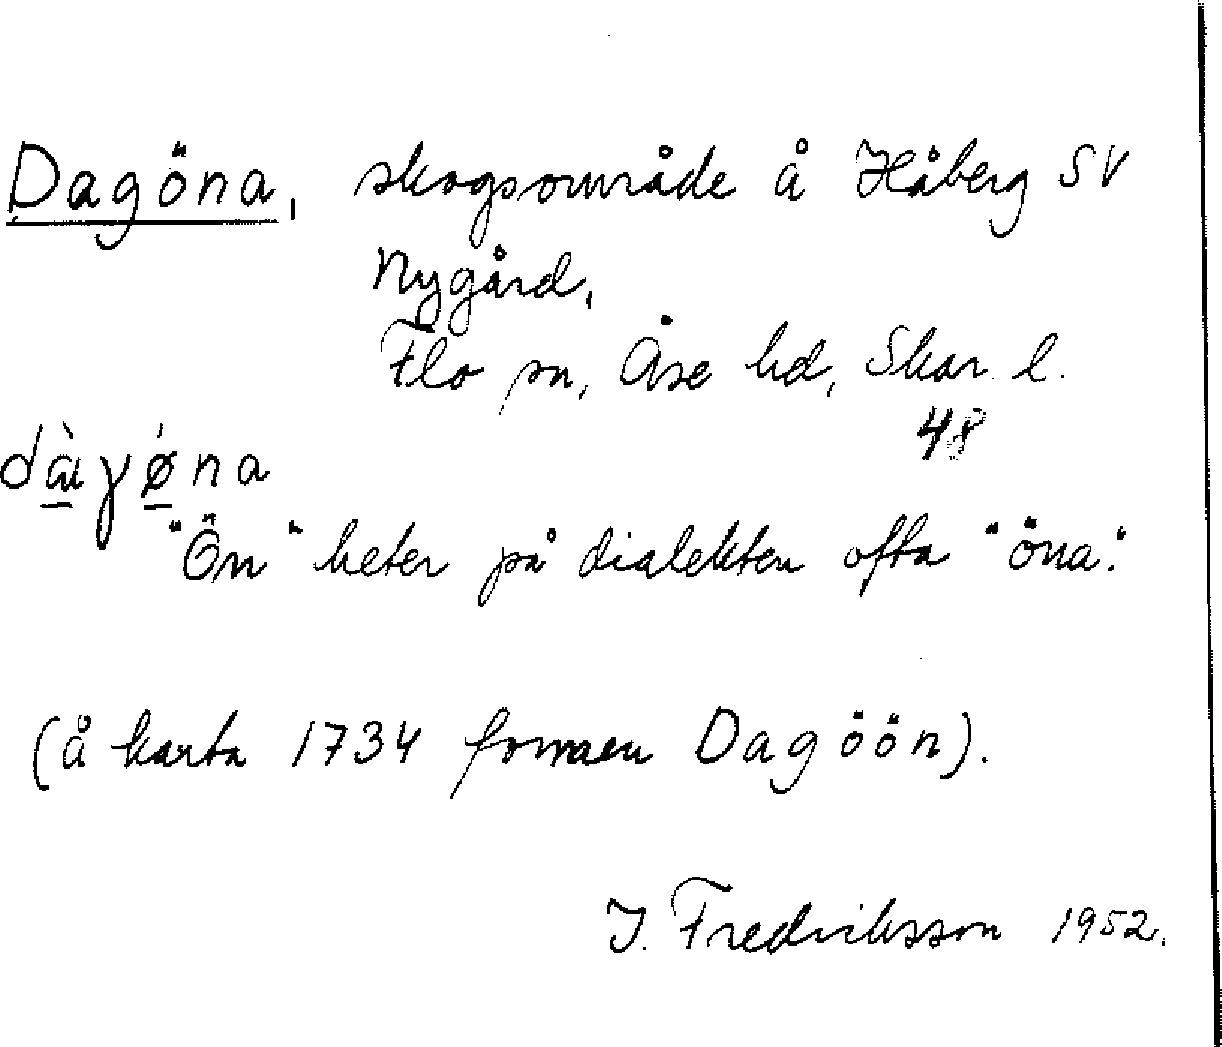 Dagöna, skogsområde å Håberg SV
Nygård,
Flo sn, Åse hd, Skar. l.
48
dàγǿna
"Ön" heter på dialekten ofta "öna".
(å karta 1734 formen Dagöön).
J. Fredriksson 1952.